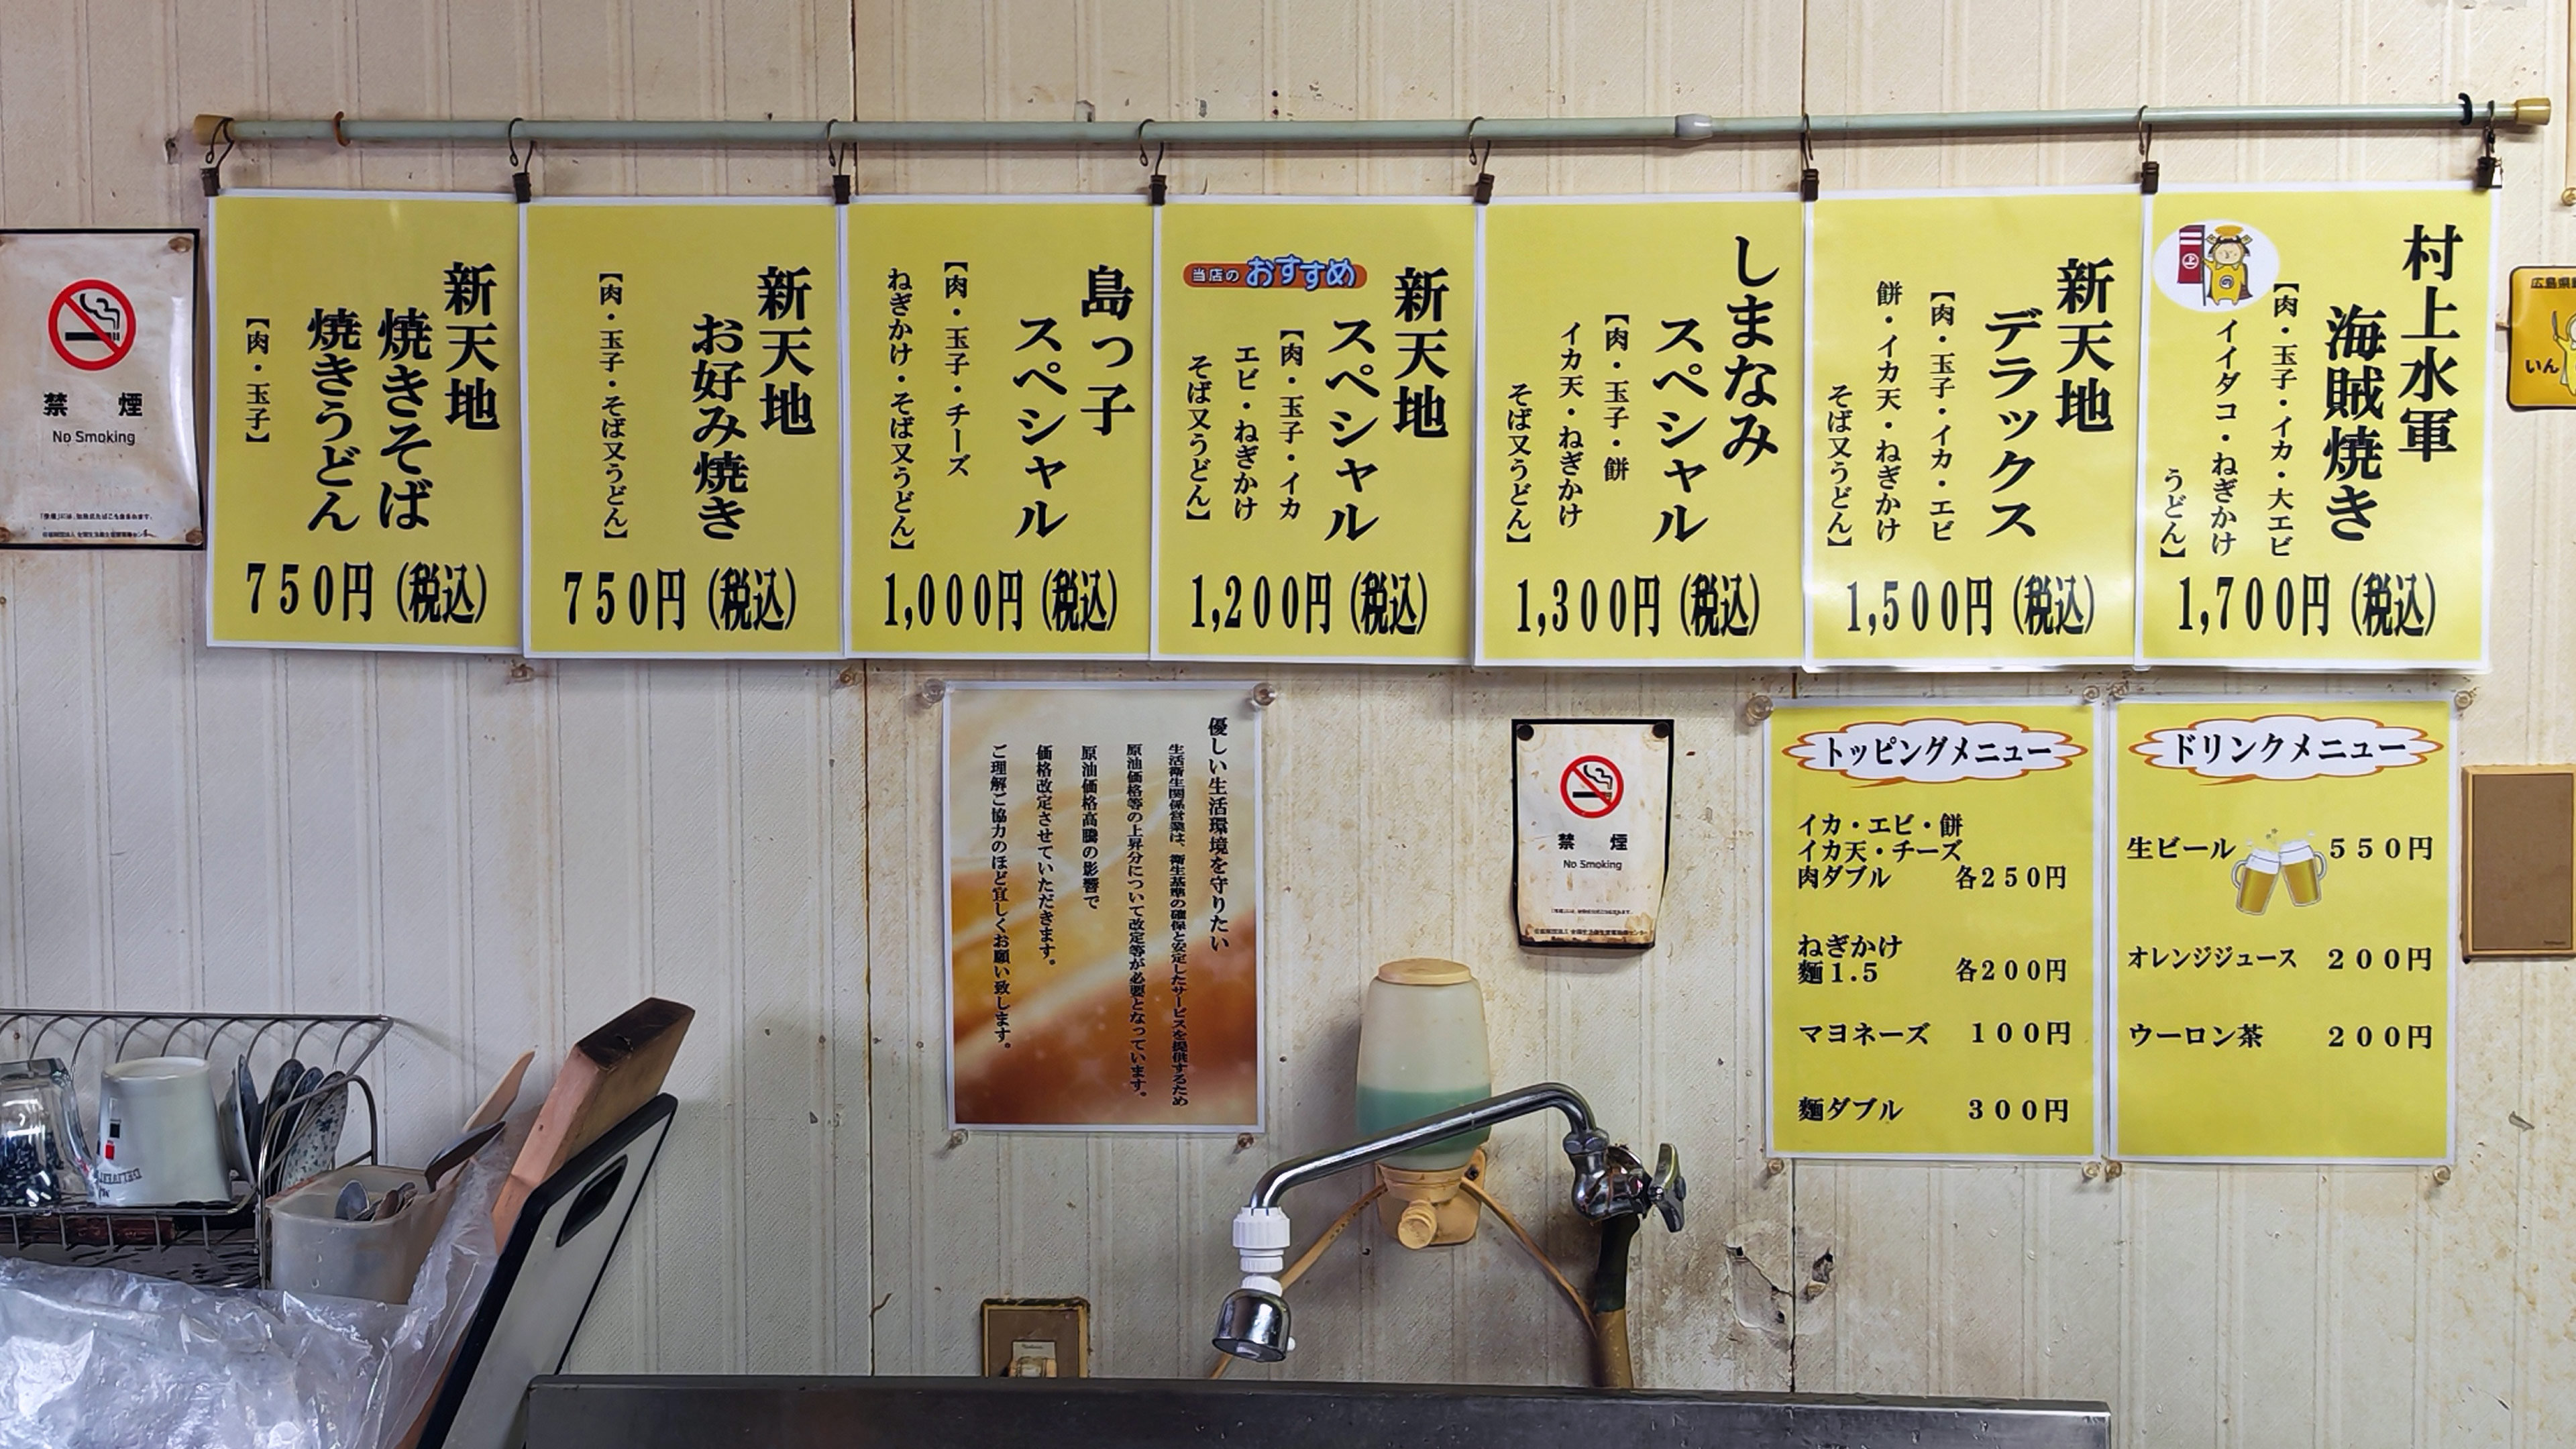 村上水軍
海賊焼き
【肉・玉子・イカ・大エビ
イイダコ・ねぎかけ
うどん】
1,700円（税込）
新天地
デラックス
【肉・玉子・イカ・エビ
餅・イカ天・ねぎかけ
そば又うどん】
1,500円（税込）
しまなみ
スペシャル
【肉・玉子・餅
イカ天・ねぎかけ
そば又うどん】
1,300円（税込）
新天地
スペシャル
当店のおすすめ
【肉・玉子・イカ
エビ・ねぎかけ
そば又うどん】
1,200円（税込）
島っ子
スペシャル
【肉・玉子・チーズ
ねぎかけ・そば又うどん】
1,000円（税込）
新天地
お好み焼き
【肉・玉子・そば又うどん】
750円（税込）
新天地
焼きそば
焼きうどん
【肉・玉子】
750円（税込）
禁煙
No Smoking
広島県
いん
優しい生活環境を守りたい
生活衛生関係営業は、衛生基準の確保と安定したサービスを提供するため
原油価格等の上昇分について改定等が必要となっています。
原油価格高騰の影響で
価格改定させていただきます。
ご理解ご協力のほど宜しくお願い致します。
禁煙
No Smoking
トッピングメニュー
イカ・エビ・餅
イカ天・チーズ
肉ダブル 各250円
ねぎかけ
麺1.5 各200円
マヨネーズ 100円
麺ダブル 300円
ドリンクメニュー
生ビール 550円
オレンジジュース 200円
ウーロン茶 200円